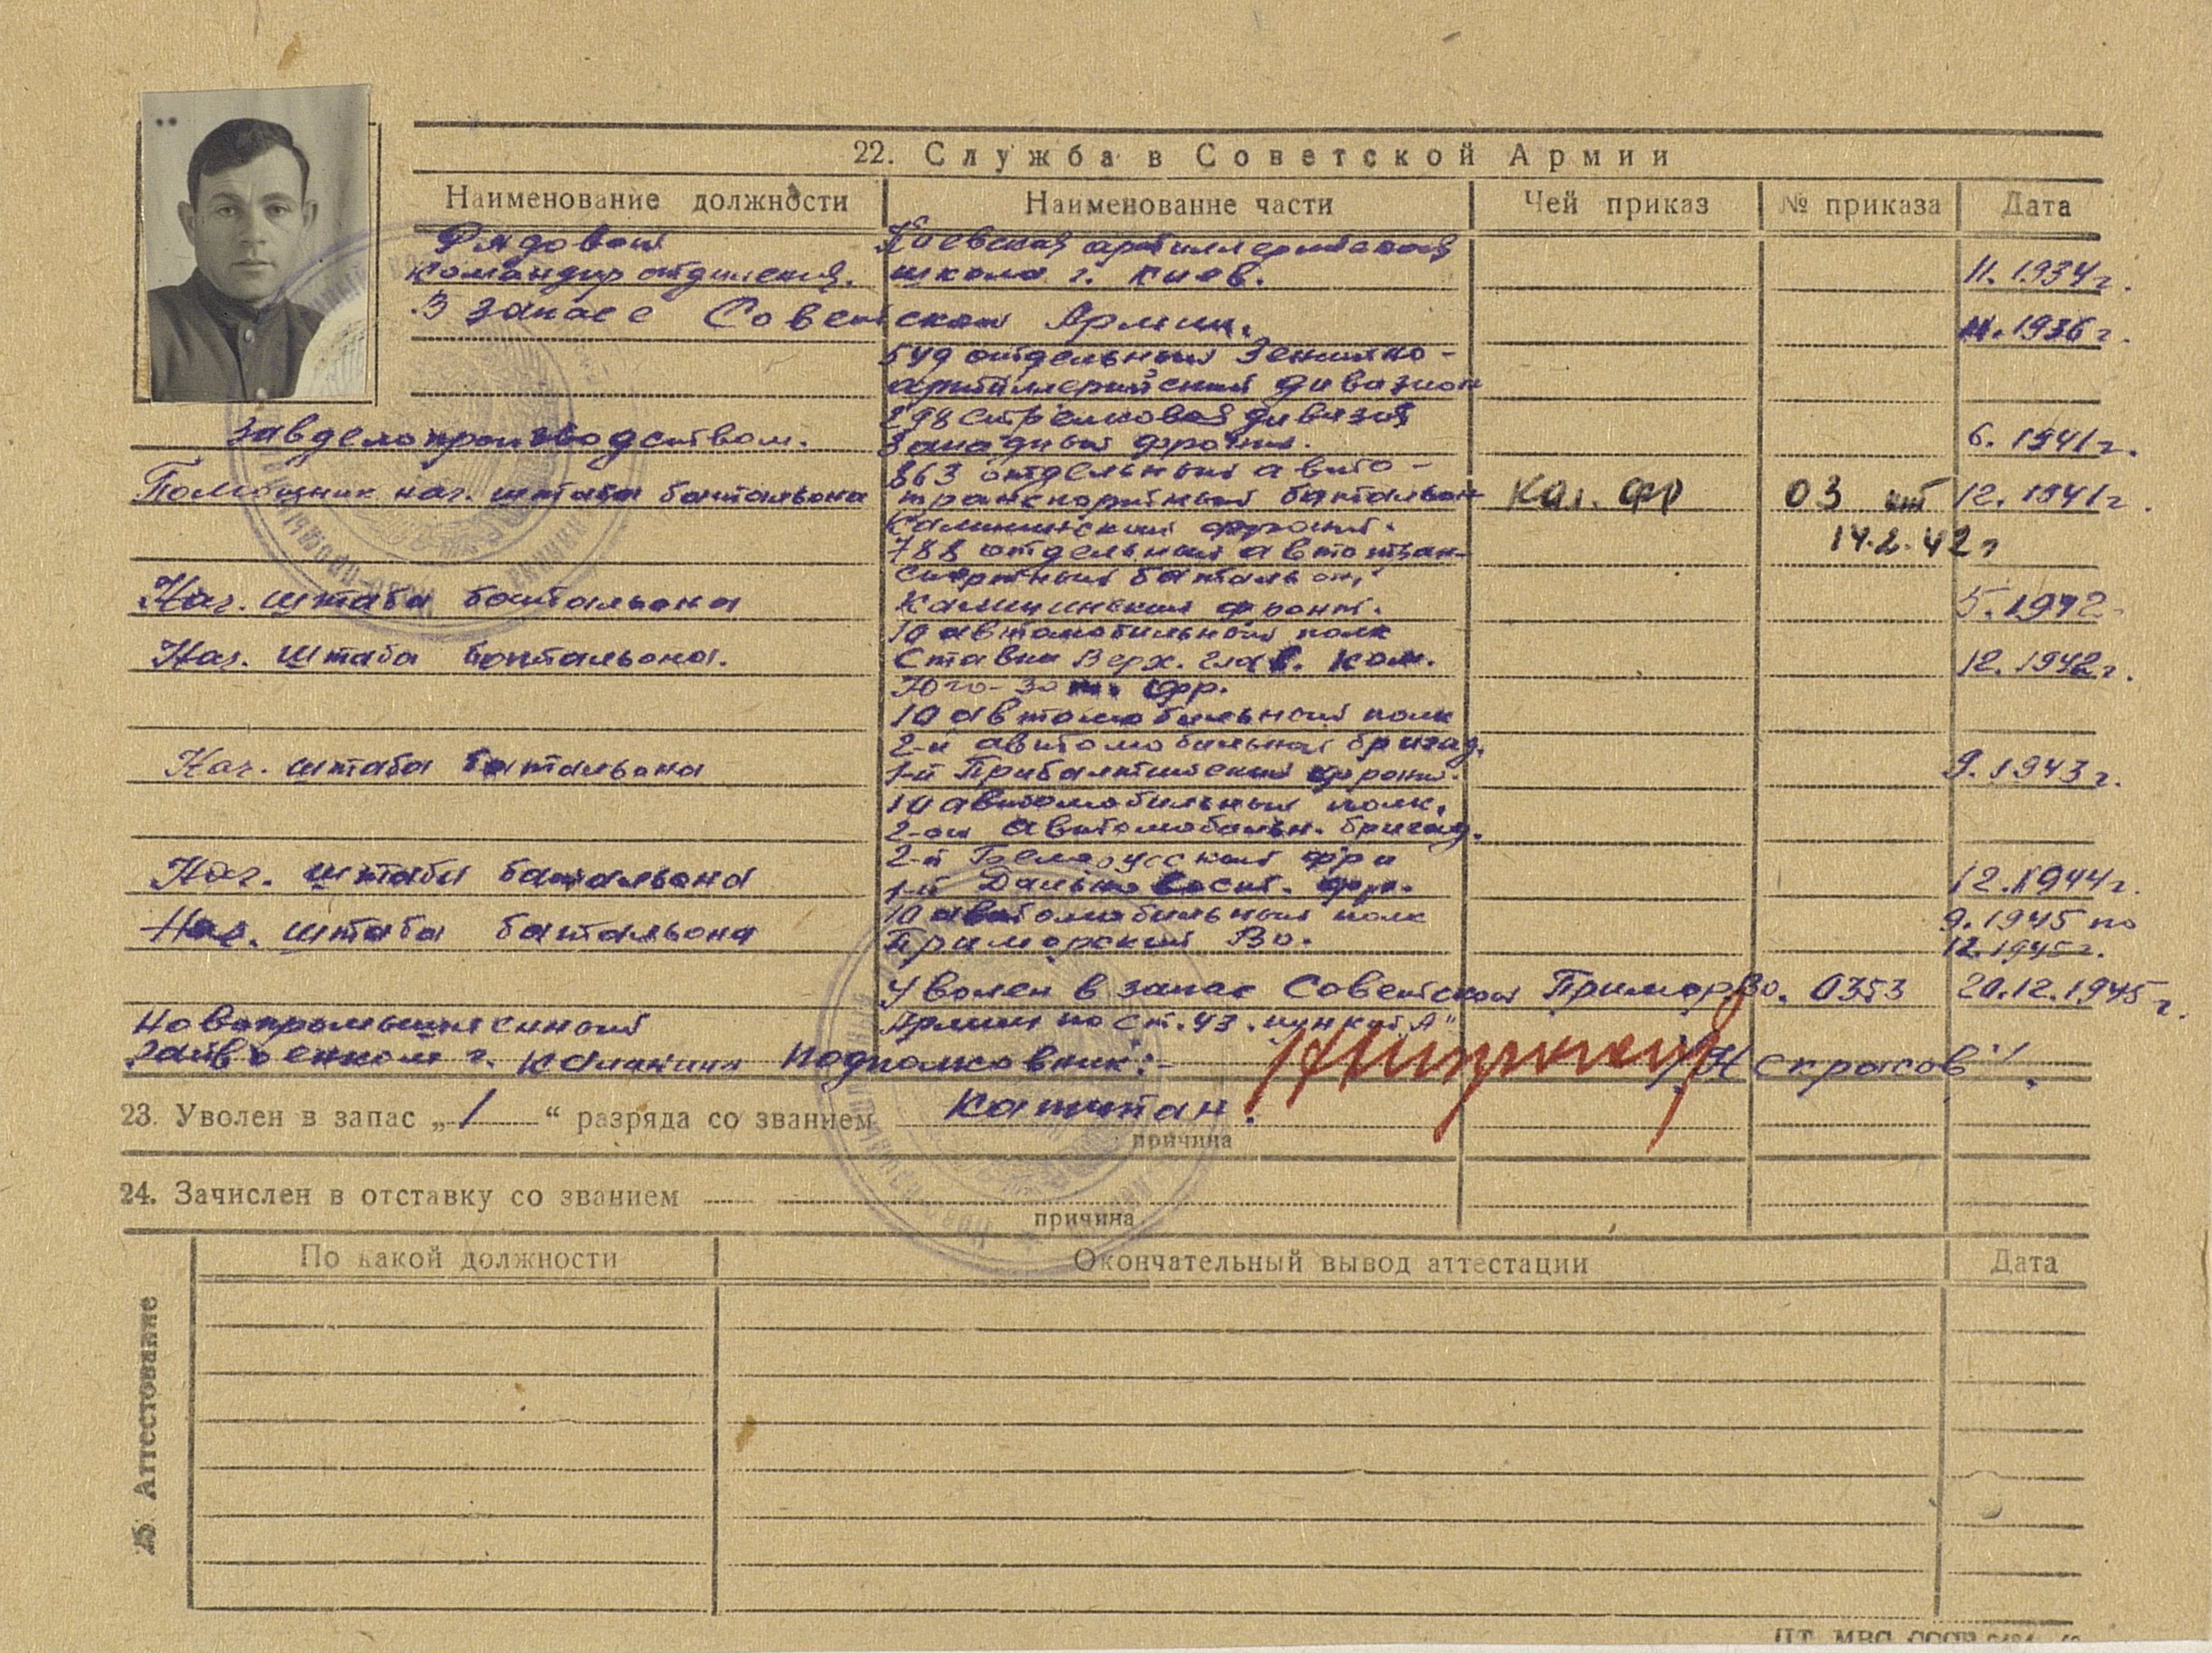 22. Служба в Советской Армии
Наименование должности Наименование части Чей приказ № приказа Дата
Рядовой Киевская артиллерийская
командир отделения. школа г. Киев. 11. 1934 г.
В запасе Советской Армии. 11. 1936 г.
549 отдельный Зенитно-
артиллерийский дивизион
298 стрелковая дивизия
Завделопроизводством. Западный фронт. 6. 1941 г.
863 отдельный авто-
Помощник нач. штаба батальона транспортный батальон Кал. фр 03 от 12. 1941 г.
Калининский фронт. 14.2.42 г
788 отдельный автотран-
спортный батальон,
Нач. штаба батальона Калининский фронт. 5. 1942
10 автомобильный полк
Нач. штаба батальона. Ставки Верх. глав. ком. 12. 1942 г.
Юго-Зап. фр.
10 автомобильный полк
2-й автомобильной бригад.
Нач. штаба батальона 1-й Прибалтийский фронт. 9. 1943 г.
10 автомобильный полк,
2-ой автомобильн. бригад.
2-й Белорусский фр и
Нач. штаба батальона 1-й Дальневост. фр. 12. 1944 г.
10 автомобильный полк 9. 1945 по
Нач. штаба батальона Приморский Во. 12. 1945 г.
Уволен в запас Советской ПриморВо. 0353 20.12.1945 г.
Новопромышленный Армии по ст. 43. пункт „А"
Райвоенком г. Калинина Подполковник:- /Некрасов/.
23. Уволен в запас „1“ разряда со званием Капитан.
причина
24. Зачислен в отставку со званием
причина
По какой должности Окончательный вывод аттестации Дата
25 Аттестование